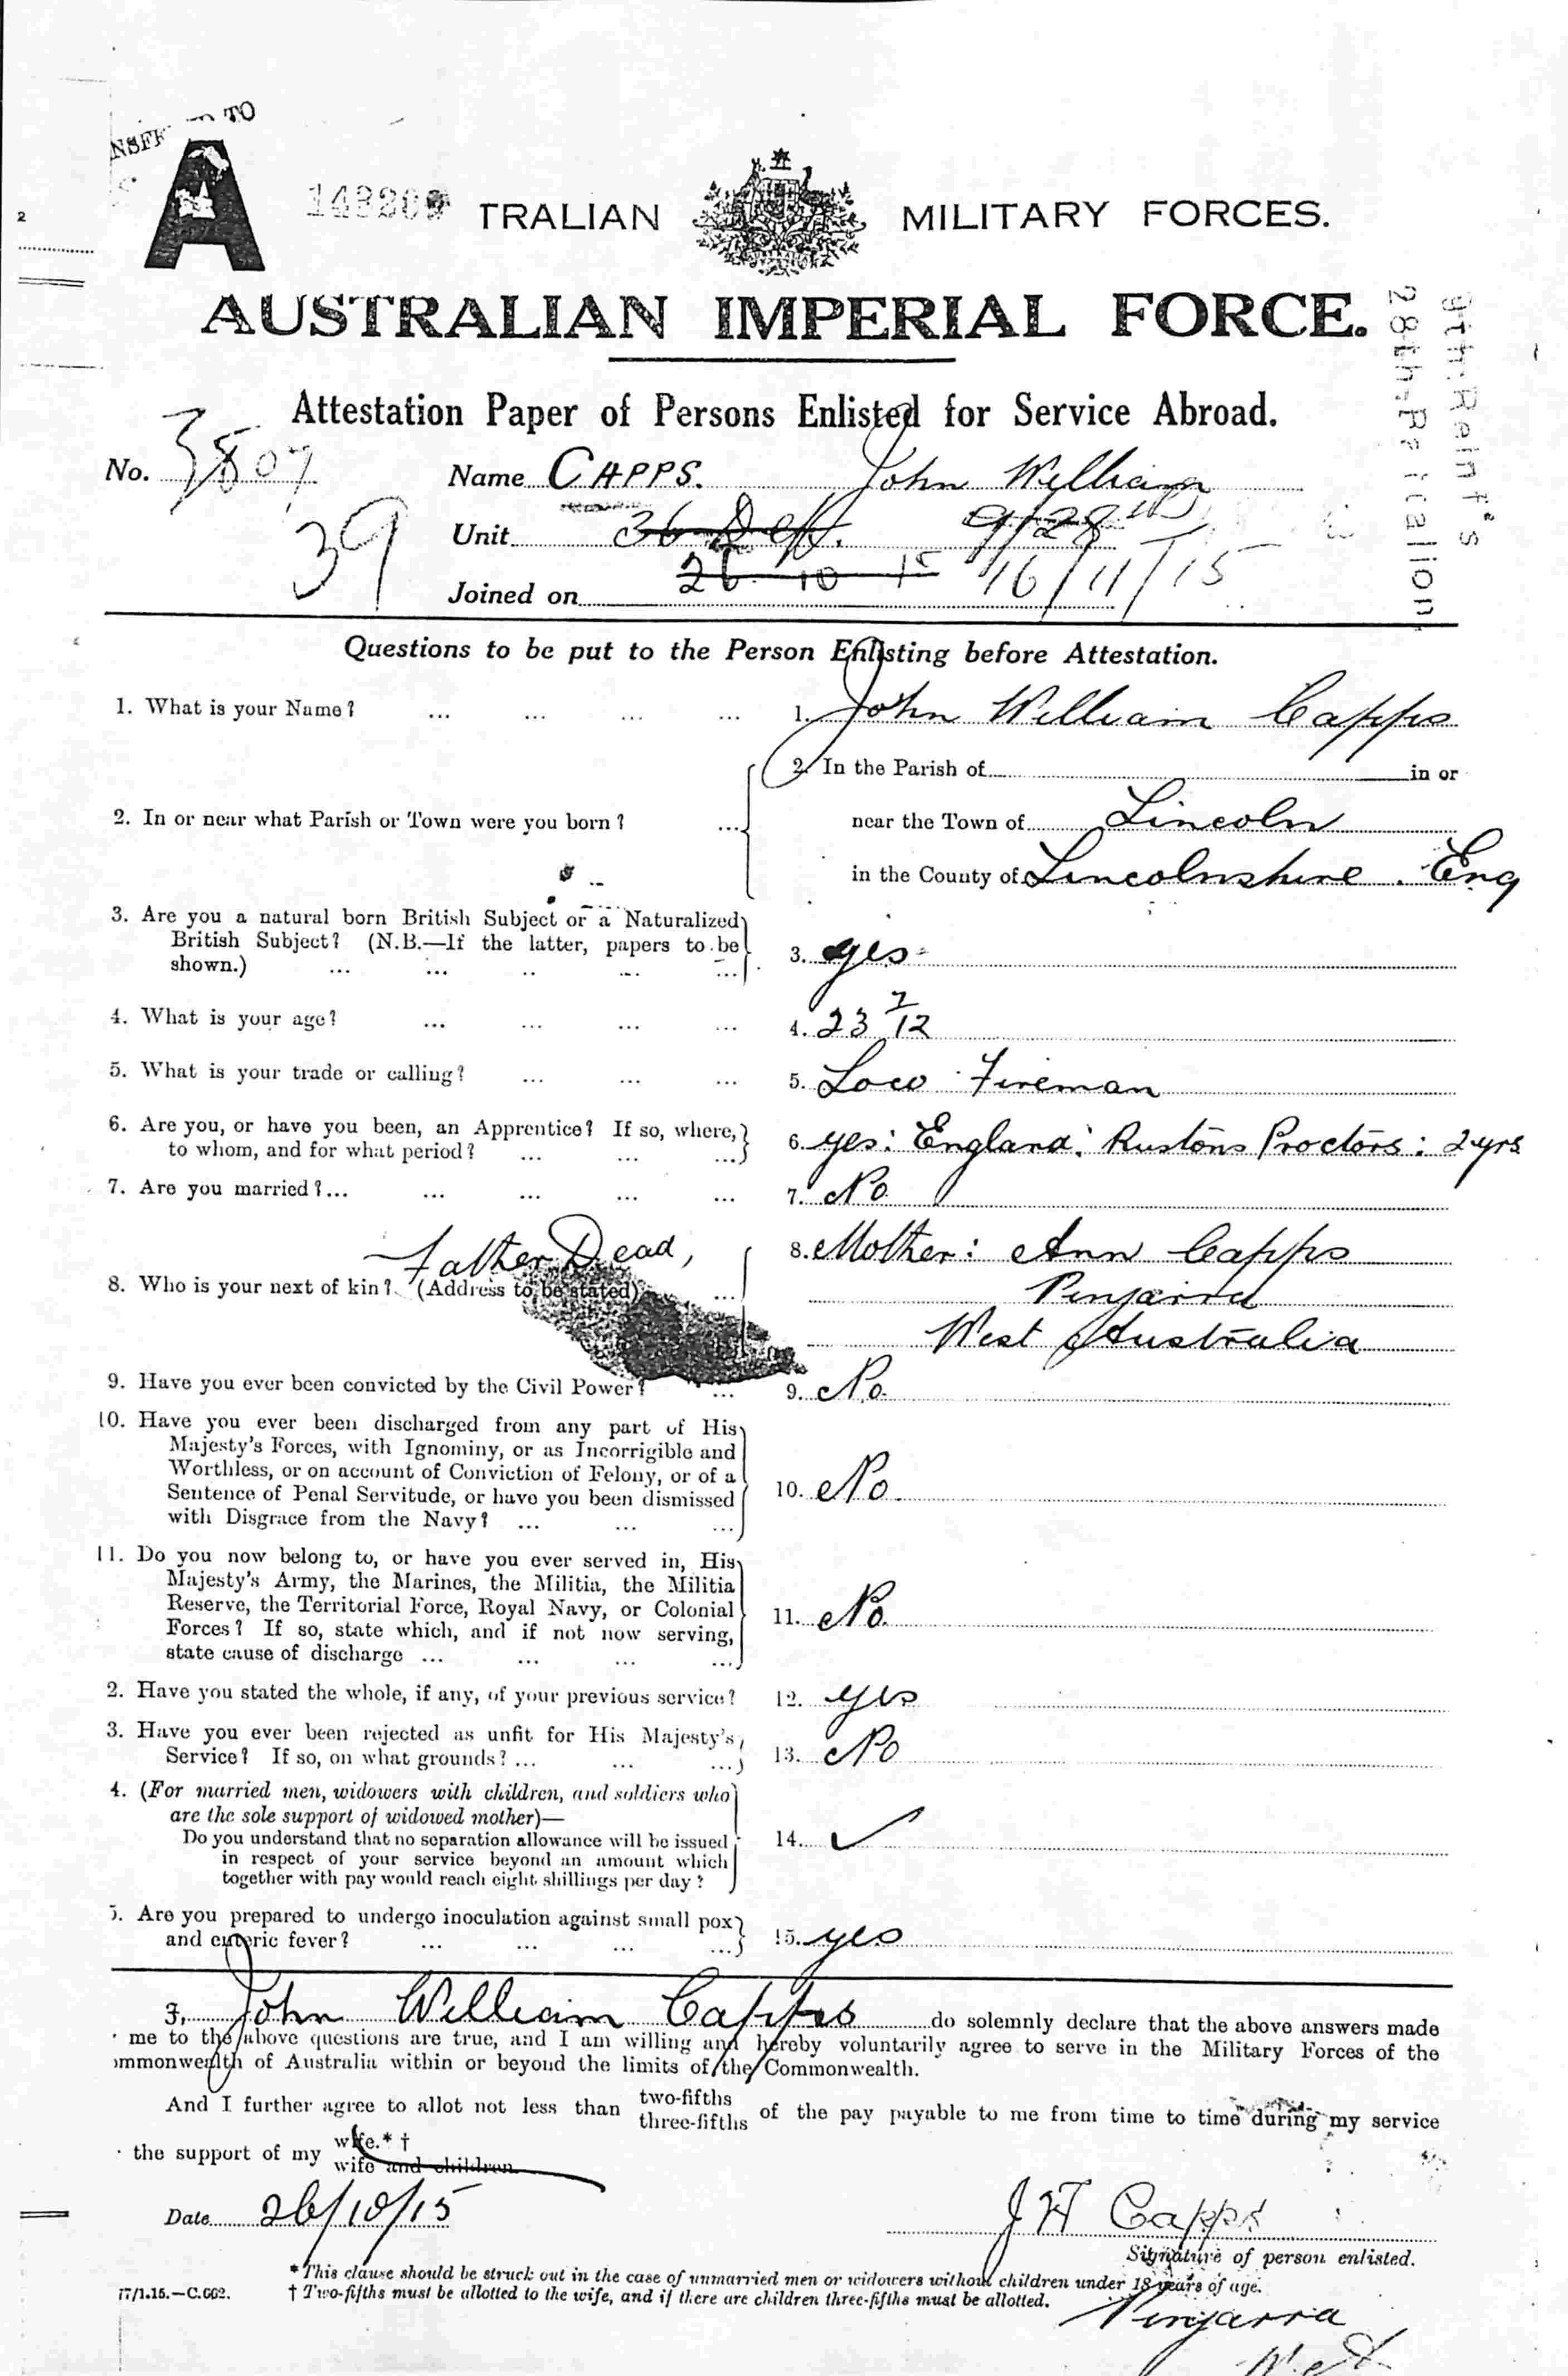 TO
A
2
TRALIAN MILITARY FORCES.
AUSTRALIAN IMPERIAL FORCE.
9th Reinf's
28th. Battalion
Attestation Paper of Persons Enlisted for Service Abroad.
No. Name CAPPS. John William
39
Unit 36 Dep. 9/28th
Joined on 26 10 15 16/11/15
Questions to be put to the Person Enlisting before Attestation.
1. What is your Name? ... ... ... ... 1. John William Capps
2. In the Parish of in or
2. In or near what Parish or Town were you born? ... near the Town of Lincoln
in the County of Lincolnshire. Eng
3. Are you a natural born British Subject or a Naturalized
British Subject? (N.B.—If the latter, papers to be
shown.) ... ... ... ... ... 3. yes
4. What is your age? ... ... ... ... 4. 23 7/12
5. What is your trade or calling? ... ... ... 5. Loco Fireman
6. Are you, or have you been, an Apprentice? If so, where,
to whom, and for what period? ... ... ... 6. yes: England: Rustons Proctors: 2 yrs
7. Are you married?... ... ... ... 7. No
Father Dead,
8. Who is your next of kin? (Address to be stated) ... 8. Mother: Ann Capps
Pinjarra
West Australia
9. Have you ever been convicted by the Civil Power? ... 9. No.
10. Have you ever been discharged from any part of His
Majesty's Forces, with Ignominy, or as Incorrigible and
Worthless, or on account of Conviction of Felony, or of a
Sentence of Penal Servitude, or have you been dismissed
with Disgrace from the Navy? ... ... ... 10. No.
11. Do you now belong to, or have you ever served in, His
Majesty's Army, the Marines, the Militia, the Militia
Reserve, the Territorial Force, Royal Navy, or Colonial
Forces? If so, state which, and if not now serving,
state cause of discharge ... ... ... ... 11. No.
2. Have you stated the whole, if any, of your previous service? 12. yes
3. Have you ever been rejected as unfit for His Majesty's
Service? If so, on what grounds? ... ... ... 13. No
4. (For married men, widowers with children, and soldiers who
are the sole support of widowed mother)—
Do you understand that no separation allowance will be issued
in respect of your service beyond an amount which
together with pay would reach eight shillings per day? 14. ✓
5. Are you prepared to undergo inoculation against small pox
and enteric fever? ... ... ... ... 15. yes
I, John William Capps do solemnly declare that the above answers made
me to the above questions are true, and I am willing and hereby voluntarily agree to serve in the Military Forces of the
ommonwealth of Australia within or beyond the limits of the Commonwealth.
And I further agree to allot not less than two-fifths three-fifths of the pay payable to me from time to time during my service
the support of my wife.* † wife and children
Date 26/10/15 J W Capps
Signature of person enlisted.
* This clause should be struck out in the case of unmarried men or widowers without children under 18 years of age.
17/1.15.—C.662. † Two-fifths must be allotted to the wife, and if there are children three-fifths must be allotted.
Pinjarra